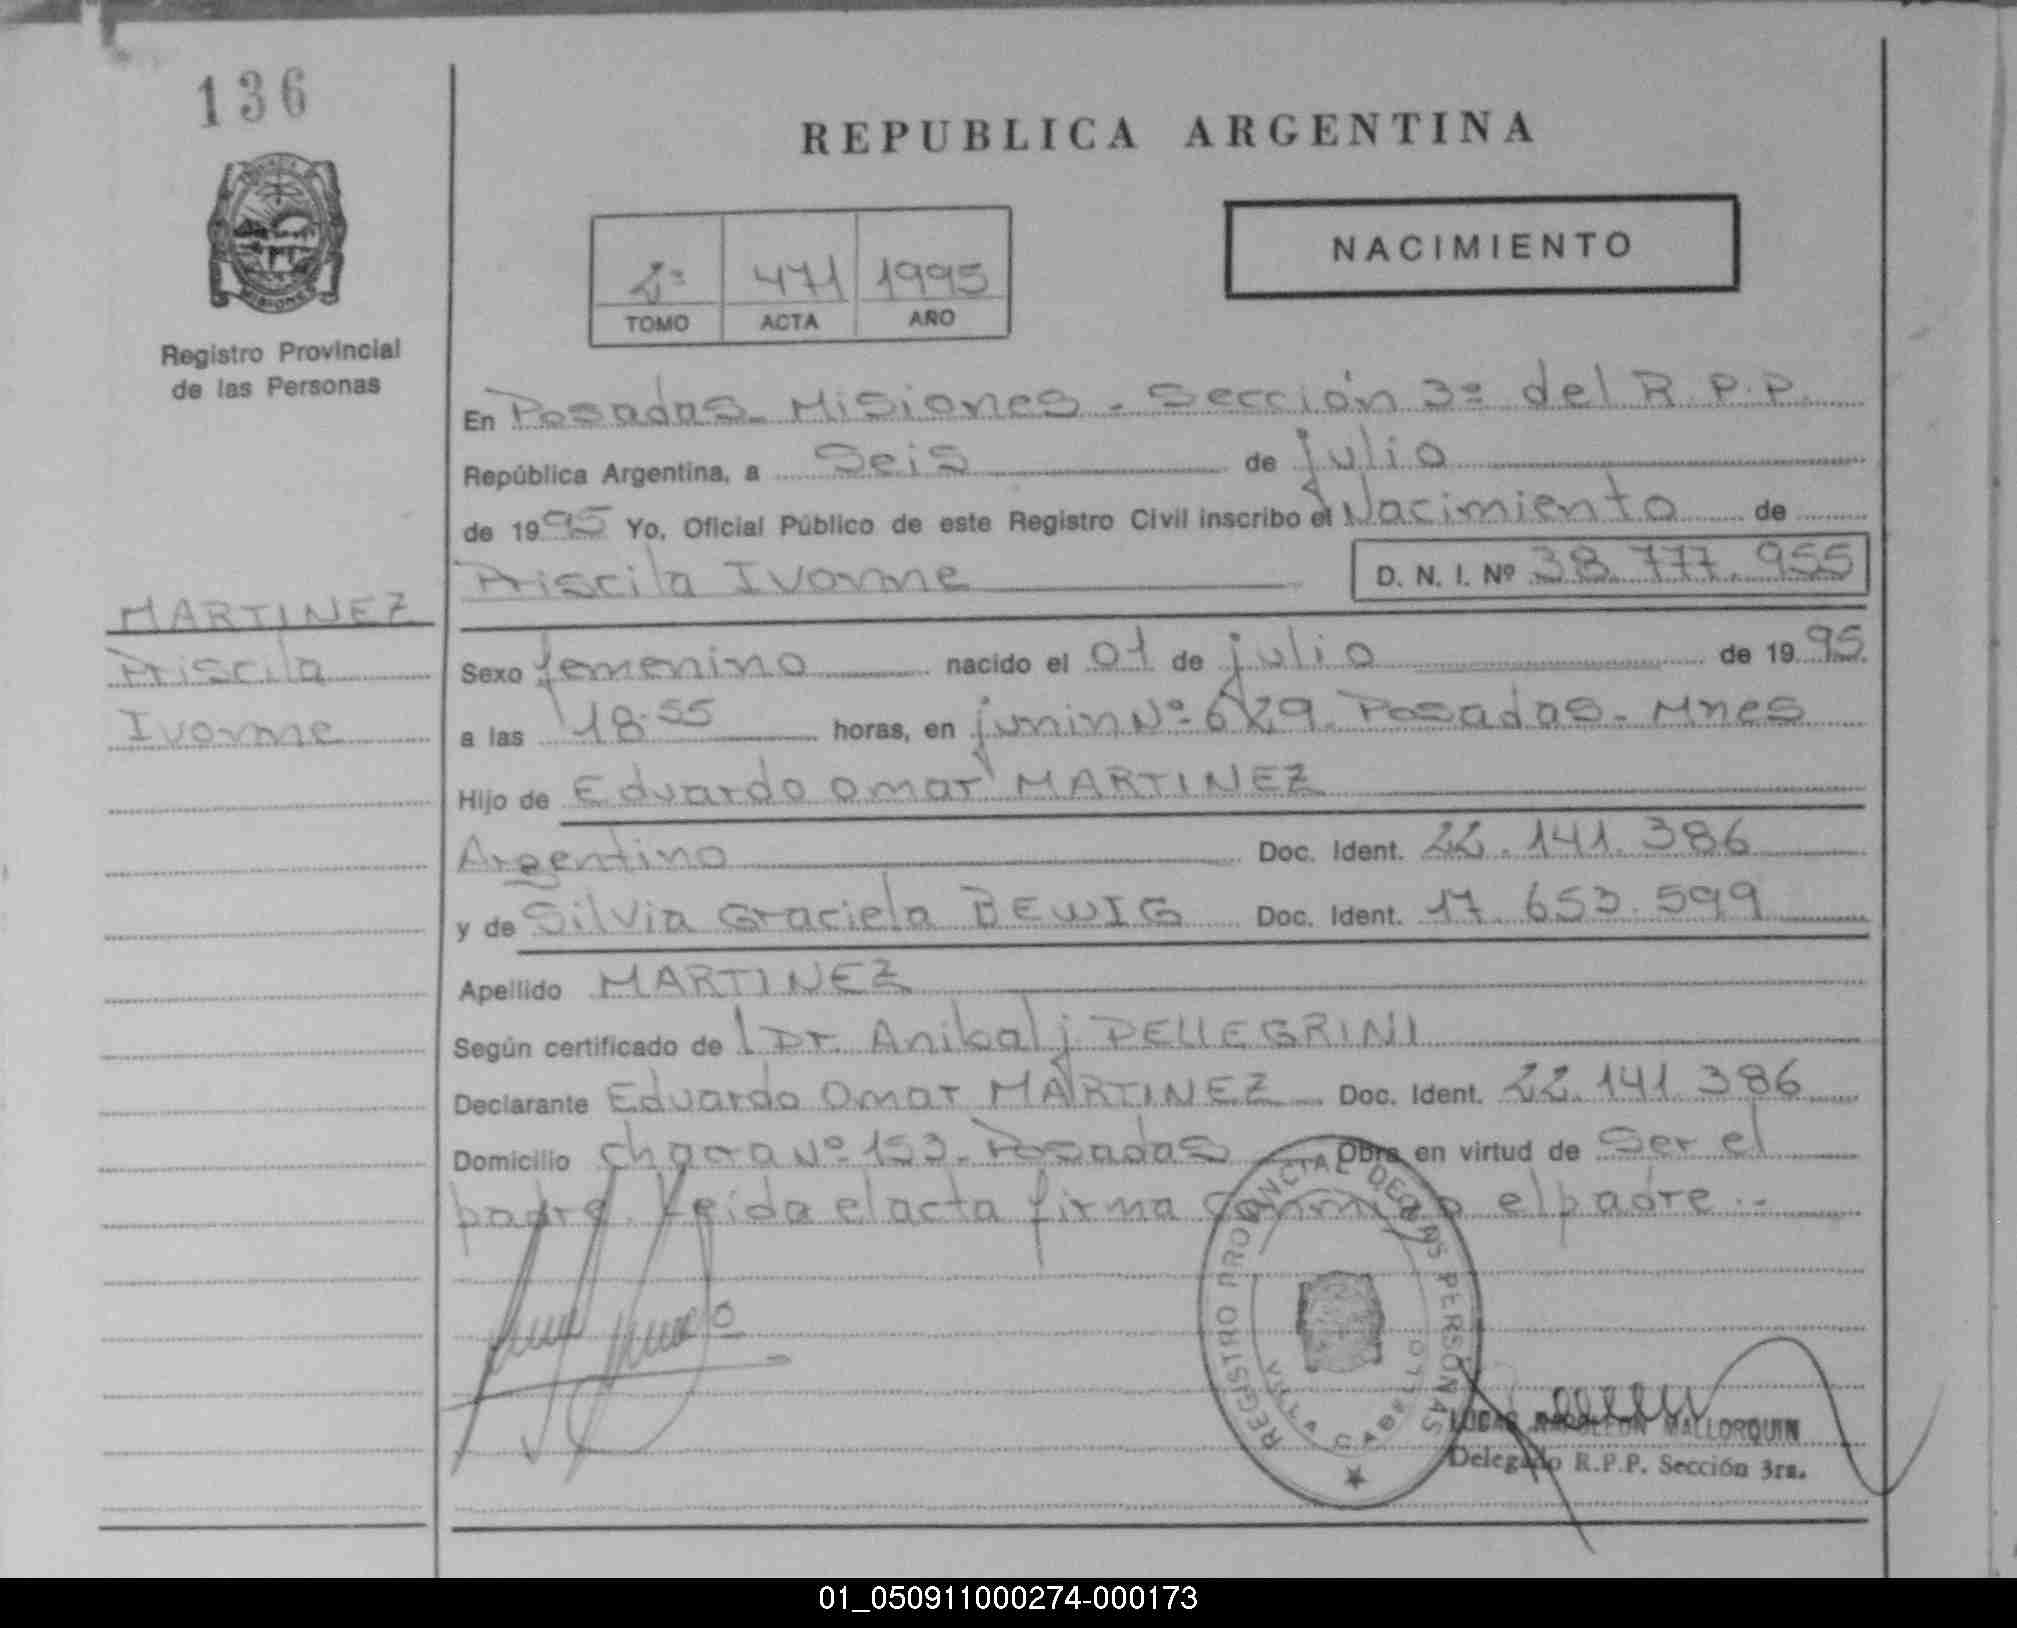 136
REPUBLICA ARGENTINA
NACIMIENTO
2º 471 1995
TOMO ACTA AÑO
MISIONES
Registro Provincial
de las Personas
En Posadas - Misiones - Sección 3º del R.P.P.
República Argentina, a Seis de julio
de 1995 Yo, Oficial Público de este Registro Civil inscribo el Nacimiento de
Priscila Ivonne D. N. I. Nº 38.777.955
MARTINEZ
Priscila
Ivonne
Sexo femenino nacido el 01 de julio de 1995
a las 18.55 horas, en junin Nº 629. Posadas - Mnes
Hijo de Eduardo Omar MARTINEZ
Argentino Doc. Ident. 22.141.386
y de Silvia Graciela BEWIG Doc. Ident. 17.653.599
Apellido MARTINEZ
Según certificado de l Dr. Anibal j PELLEGRINI
Declarante Eduardo Omar MARTINEZ Doc. Ident. 22.141.386
Domicilio chacra Nº 153 - Posadas Obra en virtud de Ser el
padre. Leida el acta firma conmigo el padre.-
REGISTRO PROVINCIAL DE LAS PERSONAS
VILLA CABELLO
LUCAS NAPOLEON MALLORQUIN
Delegado R.P.P. Sección 3ra.
01_050911000274-000173